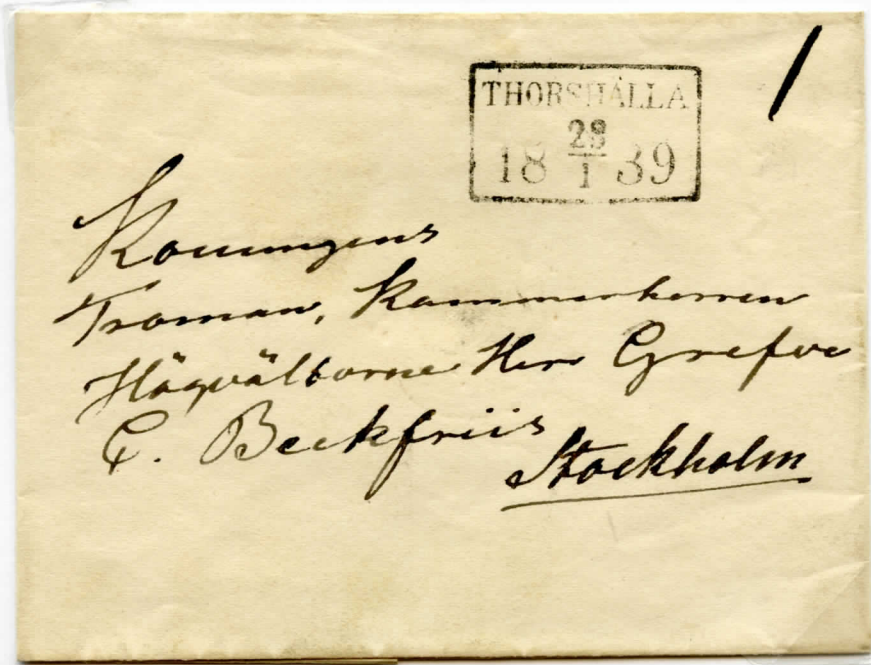 1
THORSHÄLLA
28
1
18 39
Konungens
Troman, Kammerherren
Högvälborne Herr Grefve
C. Beckfriis
Stockholm